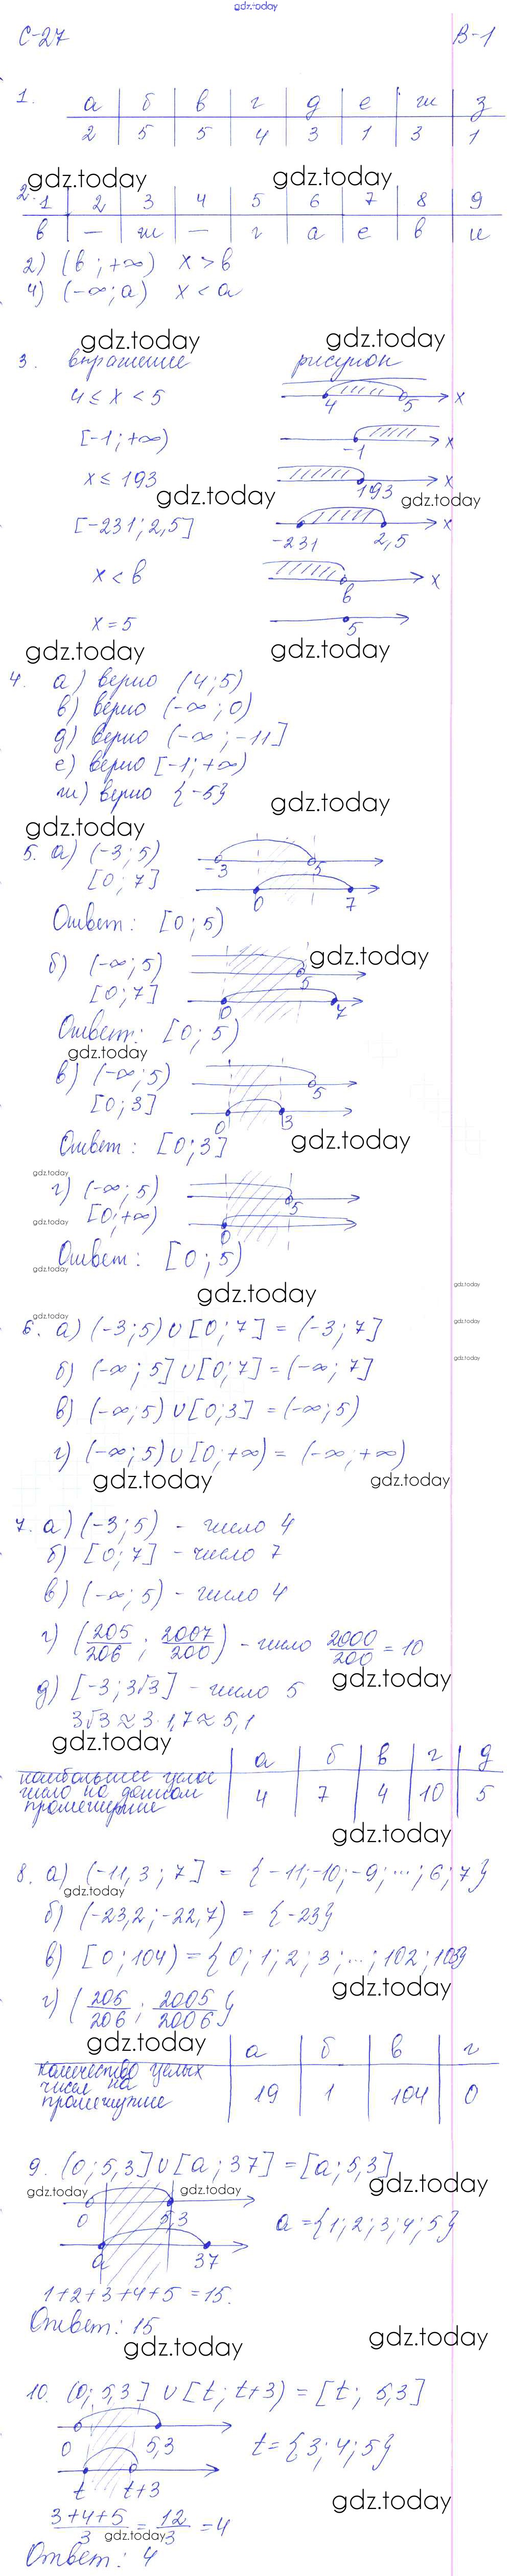 gdz.today
С-27 В-1
1. а б в г д е ж з
2 5 5 4 3 1 3 1
gdz.today gdz.today
2. 1 2 3 4 5 6 7 8 9
в — ж — г а е в и
2) (b; +∞) x > b
4) (-∞; a) x < a
gdz.today gdz.today
3. выражение рисунок
4 ≤ x < 5 4 5 x
[-1; +∞) -1 x
x ≤ 193 193 x
gdz.today gdz.today
[-231; 2,5] -231 2,5 x
x < b b x
x = 5 5
gdz.today gdz.today
4. а) верно (4; 5)
в) верно (-∞; 0)
д) верно (-∞; -11]
е) верно [-1; +∞)
ж) верно {-5}
gdz.today
gdz.today
5. а) (-3; 5) -3 5
[0; 7] 0 7
Ответ: [0; 5)
б) (-∞; 5) 5 gdz.today
[0; 7] 0 7
Ответ: [0; 5)
gdz.today
в) (-∞; 5) 5
[0; 3] 0 3
Ответ: [0; 3] gdz.today
gdz.today
г) (-∞; 5) 5
gdz.today [0; +∞) 0
Ответ: [0; 5)
gdz.today
gdz.today gdz.today
gdz.today
6. а) (-3; 5) ∪ [0; 7] = (-3; 7] gdz.today
б) (-∞; 5] ∪ [0; 7] = (-∞; 7] gdz.today
в) (-∞; 5) ∪ [0; 3] = (-∞; 5)
г) (-∞; 5) ∪ [0; +∞) = (-∞; +∞)
gdz.today gdz.today
7. а) (-3; 5) - число 4
б) [0; 7] - число 7
в) (-∞; 5) - число 4
г) (205/206; 2007/200) - число 2000/200 = 10
gdz.today
д) [-3; 3√3] - число 5
3√3 ≈ 3·1,7 ≈ 5,1
gdz.today
наибольшее целое а б в г д
число на данном 4 7 4 10 5
промежутке
gdz.today
8. а) (-11,3; 7] = {-11; -10; -9; ...; 6; 7}
gdz.today
б) (-23,2; -22,7) = {-23}
в) [0; 104) = {0; 1; 2; 3; ...; 102; 103}
gdz.today
г) (205/206; 2005/2006}
gdz.today
количество целых а б в г
чисел на 19 1 104 0
промежутке
9. (0; 5,3] ∪ [a; 37] = [a; 5,3]
gdz.today gdz.today gdz.today
0 5,3 a = {1; 2; 3; 4; 5}
a 37
1+2+3+4+5 = 15.
Ответ: 15
gdz.today gdz.today
10. (0; 5,3] ∪ [t; t+3) = [t; 5,3]
0 5,3 t = {3; 4; 5}
t t+3
gdz.today
3+4+5/3 = 12/3 = 4
gdz.today
Ответ: 4